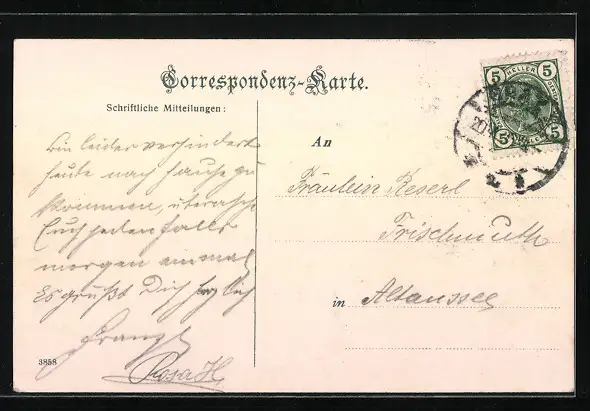 Correspondenz-Karte.
Schriftliche Mitteilungen:
Bin leider verhindert
heute nach hause zu
kommen, überasche
Euch jedenfalls
morgen einmal
Es grüßt Dich herzlich
Franzl
Rosa H
3858
An
Fräulein Reserl
Frischmuth
in Altaussee
5 HELLER 5
5 5